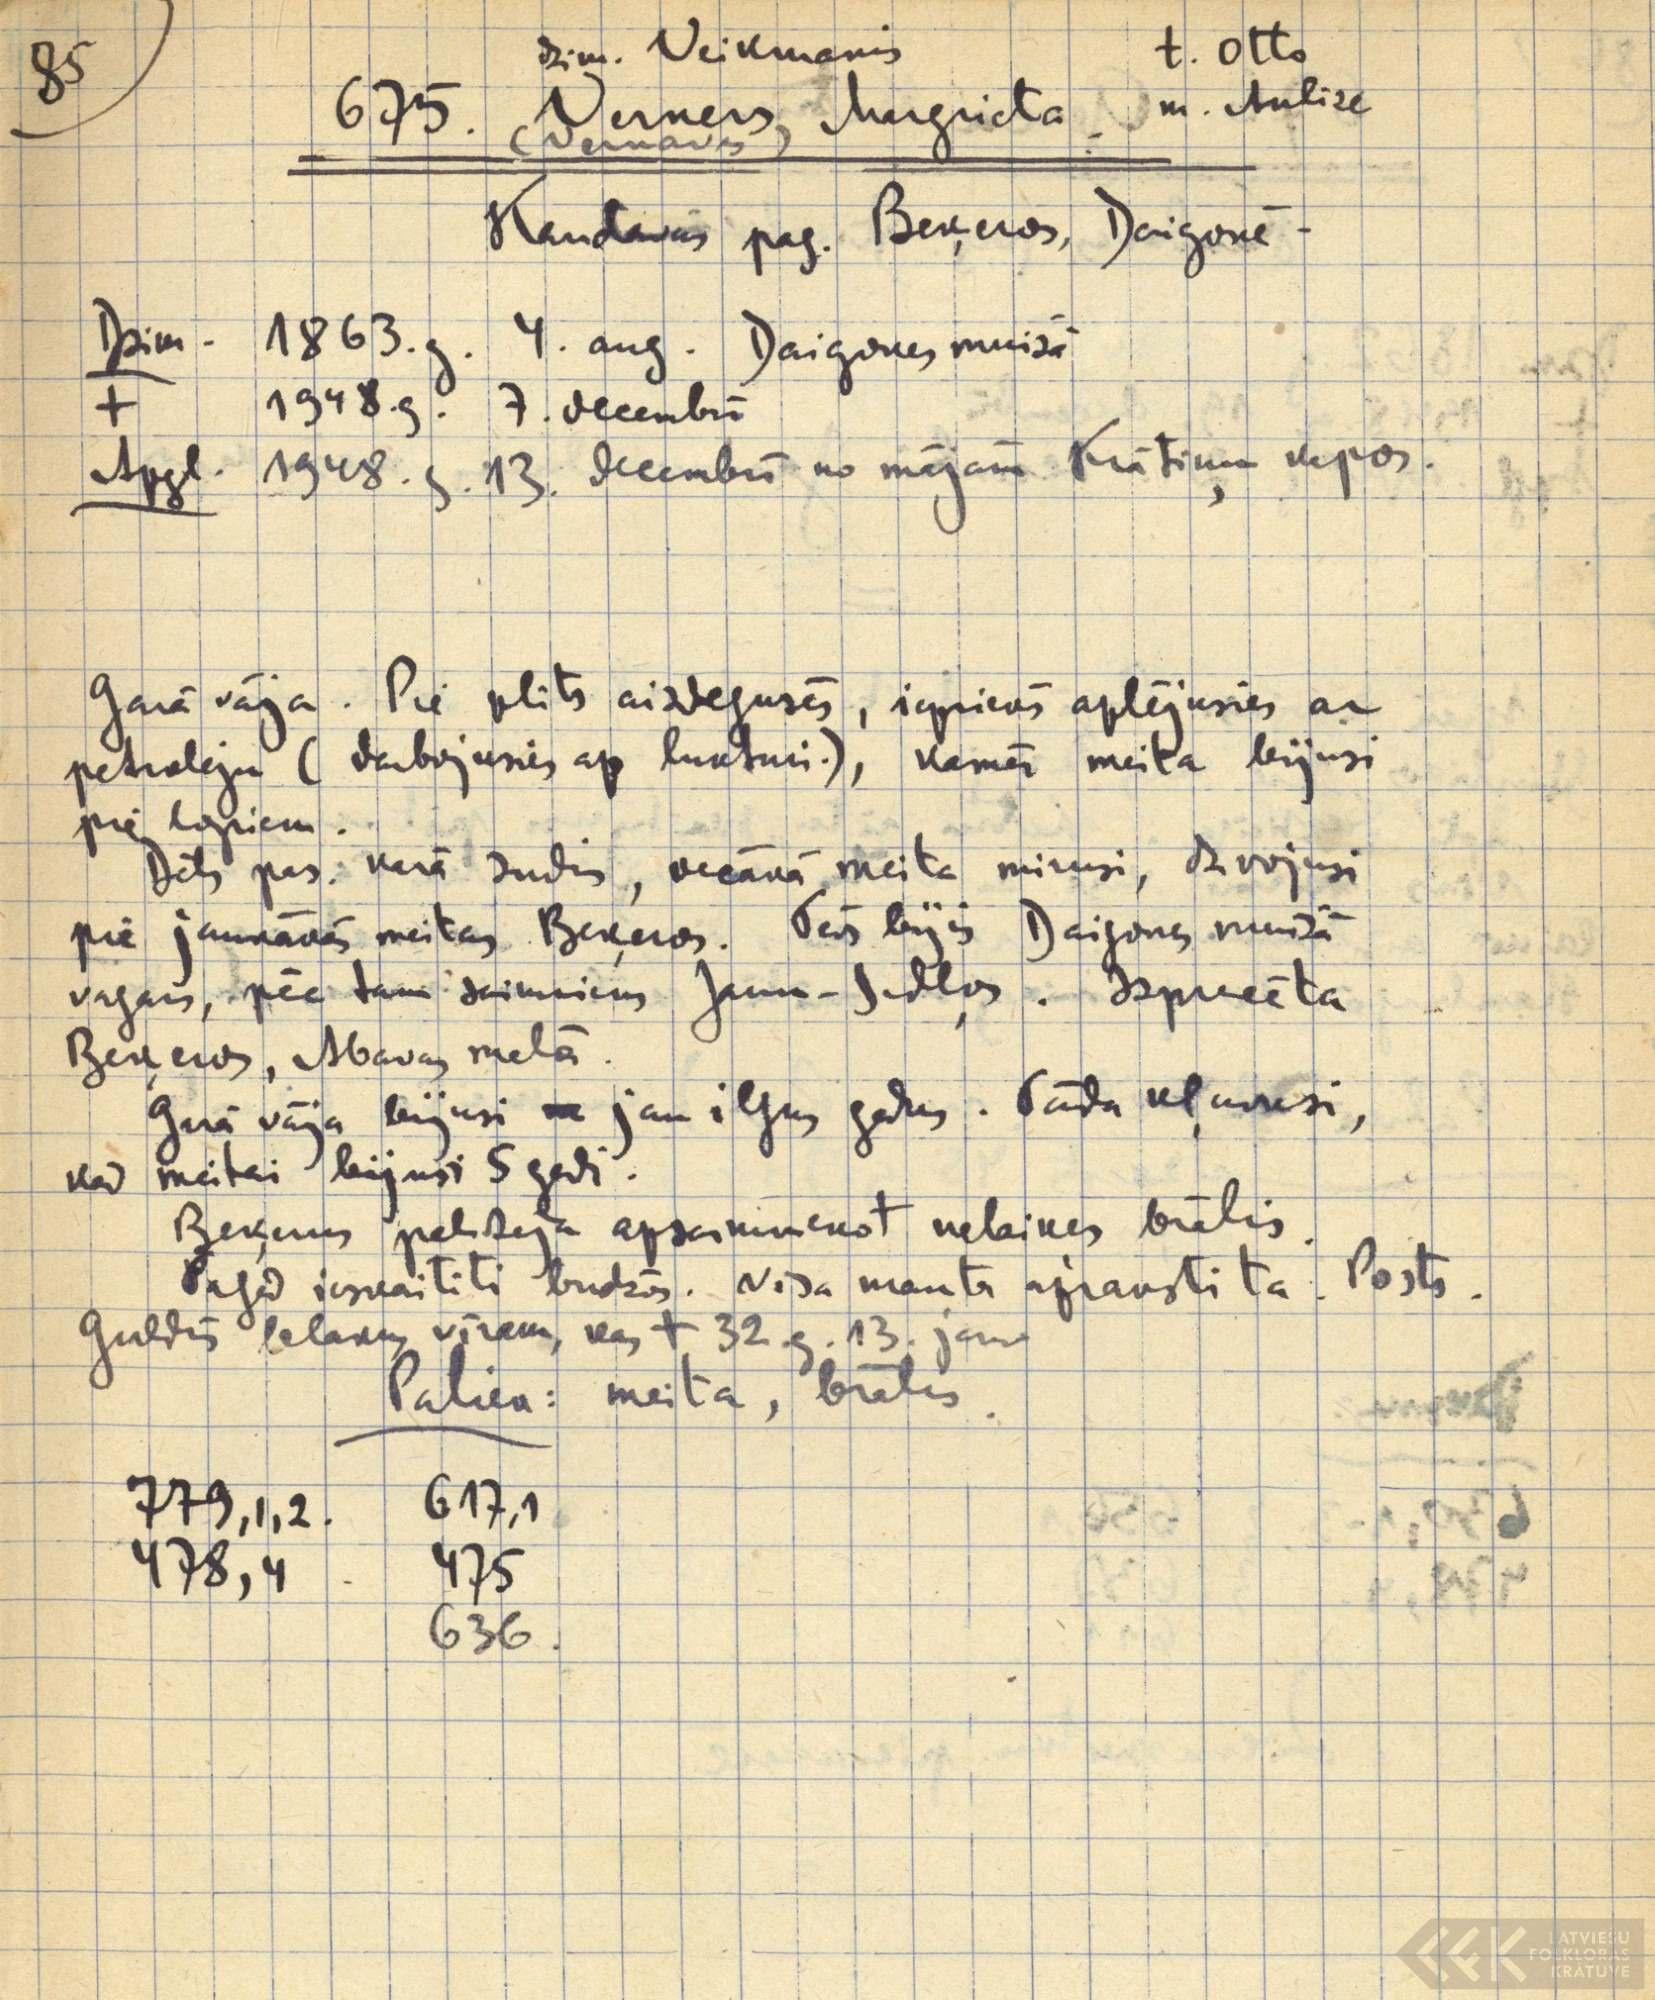 85
dzim. Veikmanis t. Otto
675. Verners, Margrieta. m. Anlize
(Vernavs)
Kandavas pag. Beķeros, Daigonē.
Dzim. 1863. g. 4. aug. Daigones muižā
+ 1948. g. 7. decembrī
Apgl. 1948. g. 13. decembrī no mājām Krātiņu kapos.
Garā vāja. Pie plīts aizdegusēs, iepriekš aplējusies ar
petroleju (darbojusies ap lukturi.), kamēr meita bijusi
pie lopiem.
Dēls pas. karā zudis, vecākā meita mirusi, dzīvojusi
pie jaunākās meitas Beķeros. Tēvs bijis Daigones muižā
vagars, pēc tam saimnieks Jaun- . Izprecēta
Beķeros, Abavas malā.
Garā vāja bijusi jau ilgus gadus. Tāda kļuvusi,
kad meitai bijusi 5 gadi.
Beķerus palīdzēja apsaimniekot nelaiķes brālis.
Tagad ieskaitīti budžos. Visa manta aprakstīta. Posts.
Guldīs blakus vīram, kas + 32. g. 13. janv
Paliek: meita, brālis.
779,1,2. 617,1
478,4 475
636.
LATVIEŠU
FOLKLORAS
KRĀTUVE